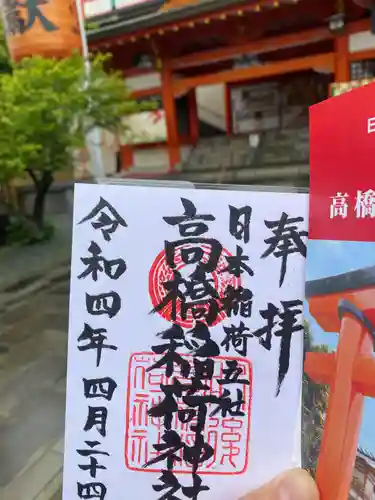 奉拝
日本稲荷五社
高橋稲荷神社
令和四年四月二十四
日
高橋